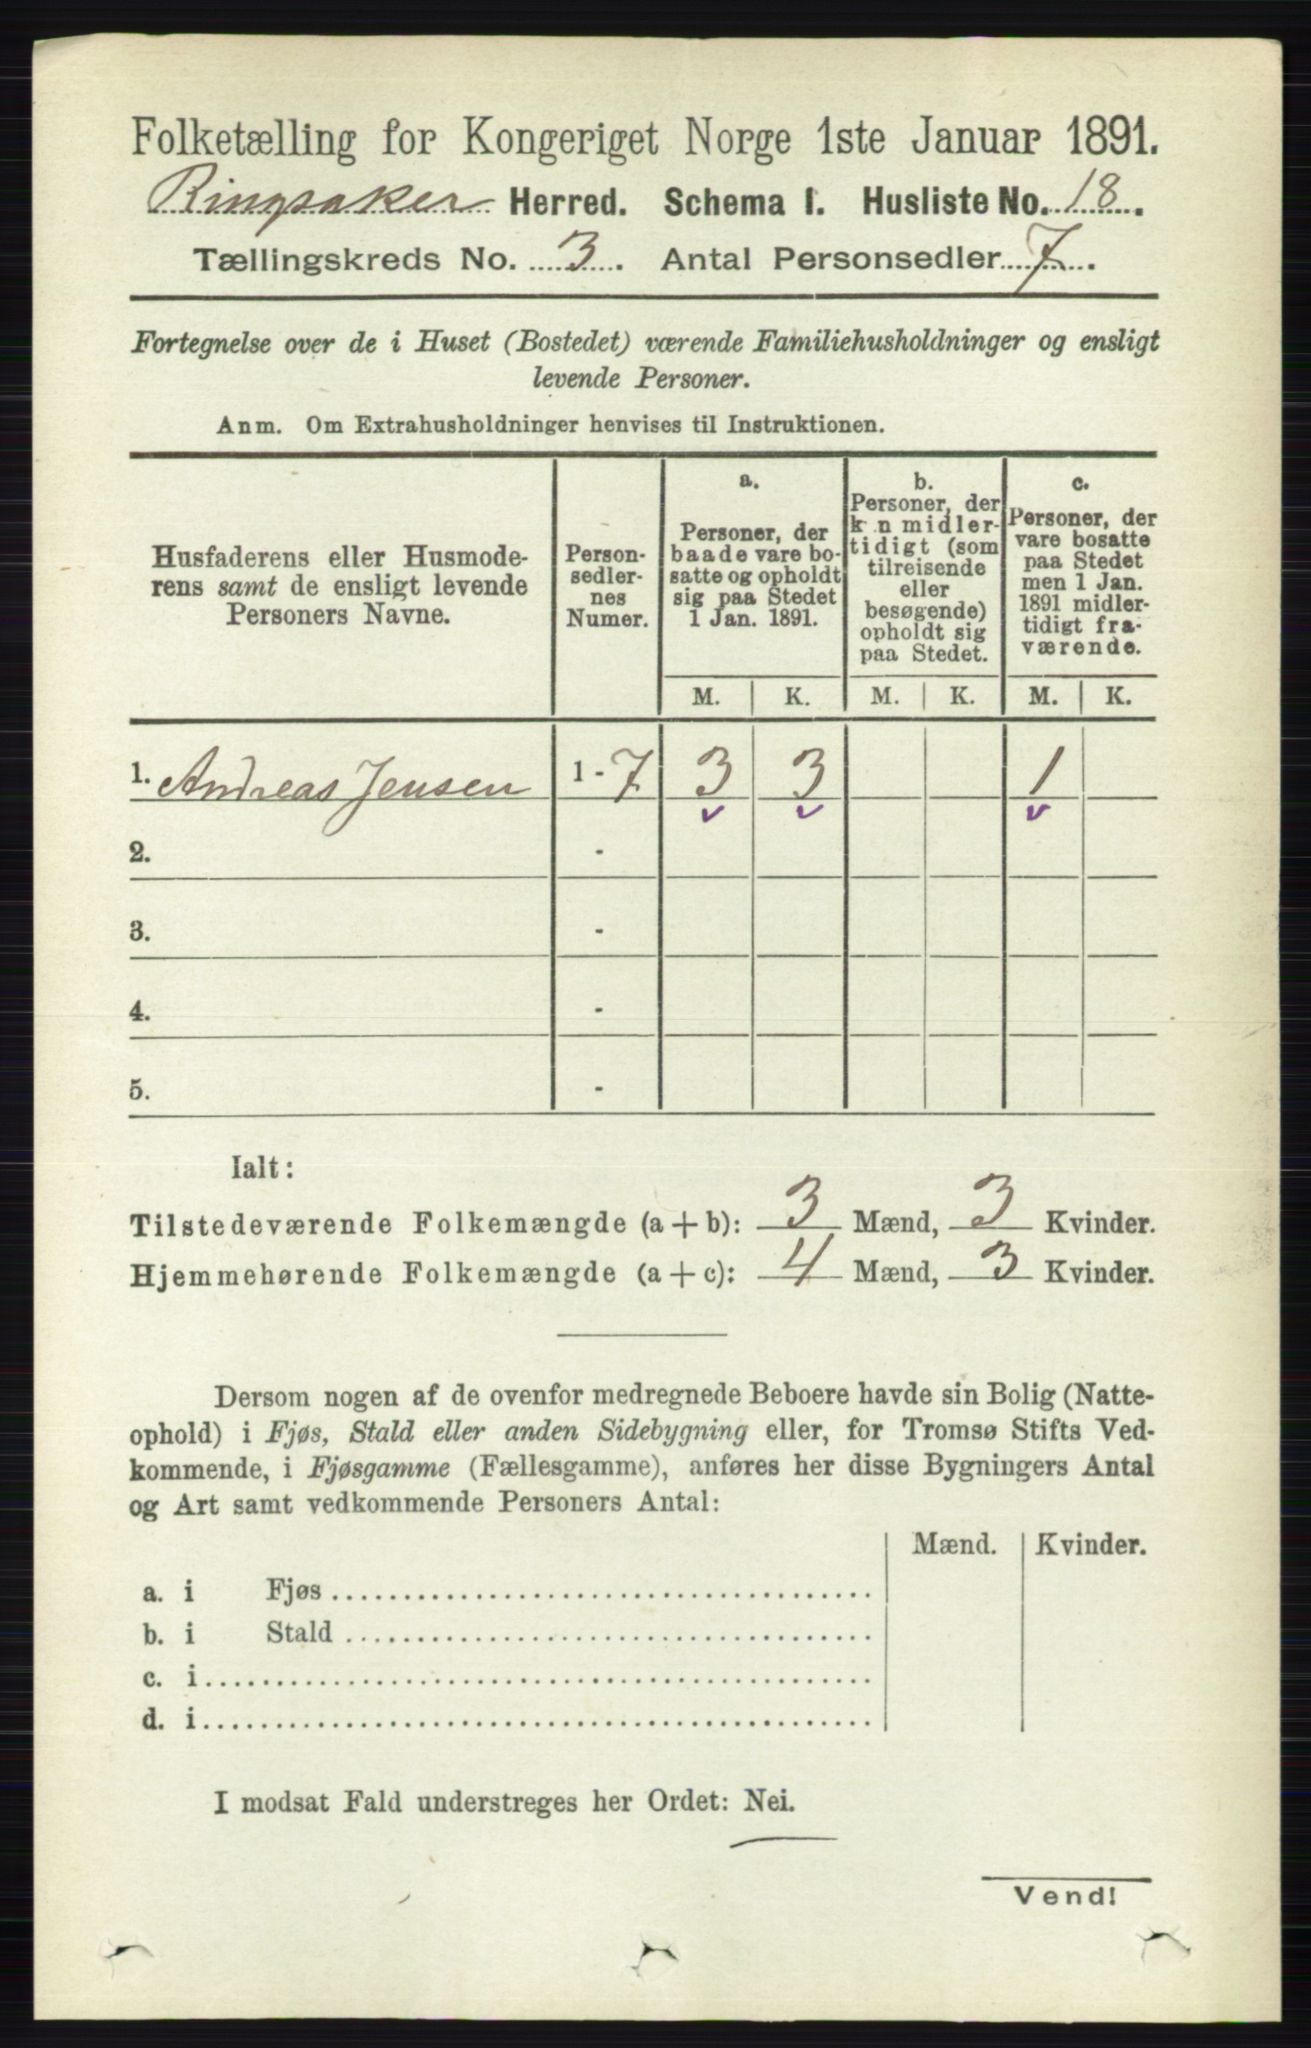 Folketælling for Kongeriget Norge 1ste Januar 1891.
Ringsaker Herred. Schema I. Husliste No. 18.
Tællingskreds No. 3. Antal Personsedler 7.
Fortegnelse over de i Huset (Bostedet) værende Familiehusholdninger og ensligt
levende Personer.
Anm. Om Extrahusholdninger henvises til Instruktionen.
Husfaderens eller Husmode-
rens samt de ensligt levende
Personers Navne.
Person-
sedler-
nes
Numer.
a.
Personer, der
baade vare bo-
satte og opholdt
sig paa Stedet
1 Jan. 1891.
b.
Personer, der
k n midler-
tidigt (som
tilreisende
eller
besøgende)
opholdt sig
paa Stedet.
c.
Personer, der
vare bosatte
paa Stedet
men 1 Jan.
1891 midler-
tidigt fra-
værende.
M. K. M. K. M. K.
1. Andreas Jensen 1 - 7 3 3 1
2. -
3. -
4. -
5. -
Ialt:
Tilstedeværende Folkemængde (a + b): 3 Mænd, 3 Kvinder.
Hjemmehørende Folkemængde (a + c): 4 Mænd, 3 Kvinder.
Dersom nogen af de ovenfor medregnede Beboere havde sin Bolig (Natte-
ophold) i Fjøs, Stald eller anden Sidebygning eller, for Tromsø Stifts Ved-
kommende, i Fjøsgamme (Fællesgamme), anføres her disse Bygningers Antal
og Art samt vedkommende Personers Antal:
Mænd. Kvinder.
a. i Fjøs
b. i Stald
c. i
d. i
I modsat Fald understreges her Ordet: Nei.
Vend!